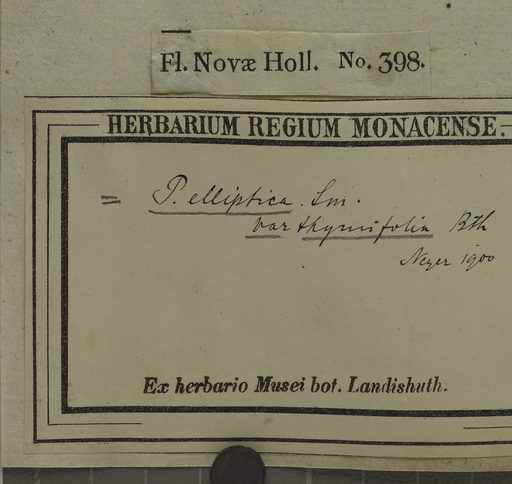 Fl. Novæ Holl. No. 398.
HERBARIUM REGIUM MONACENSE.
= P. elliptica. Sm.
var thymifolia Bth
1900
Ex herbario Musei bot. Landishuth.